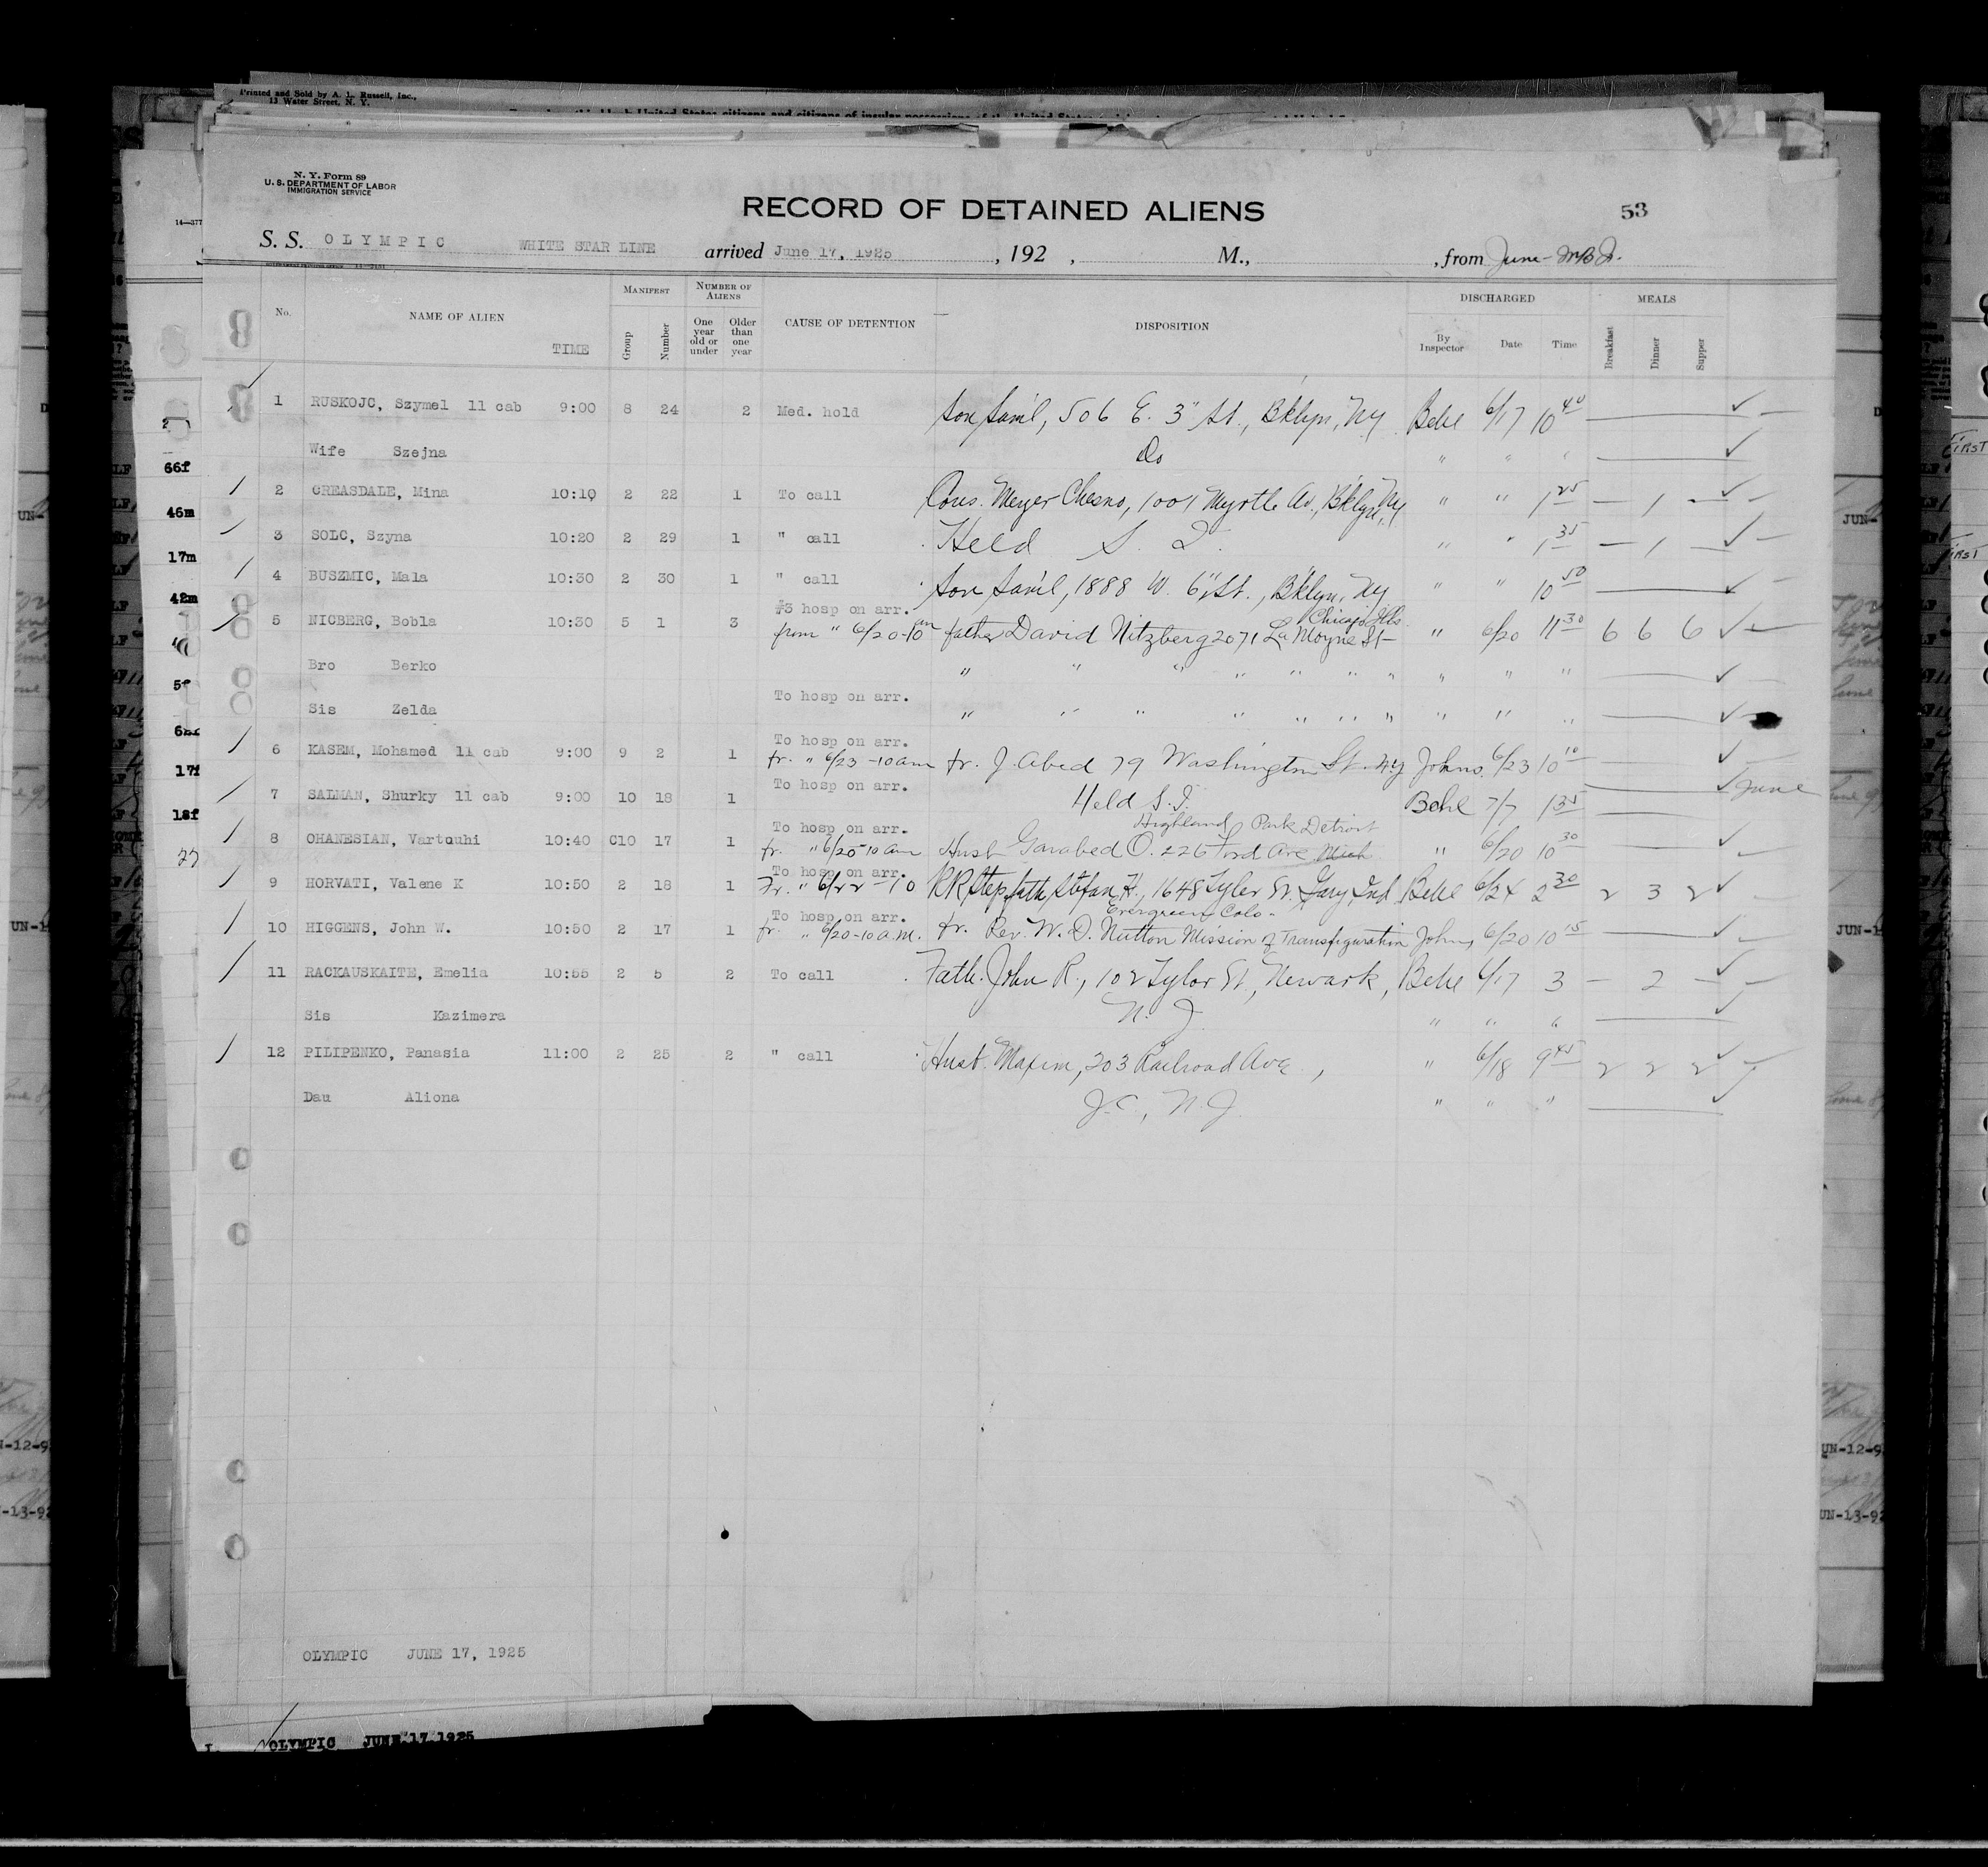 Printed and Sold by A. L. Russell, Inc.,
13 Water Street, N. Y.
N. Y. Form 89
U. S. DEPARTMENT OF LABOR
IMMIGRATION SERVICE
14—377
RECORD OF DETAINED ALIENS
53
S. S. OLYMPIC WHITE STAR LINE arrived June 17, 1925, 192 , M., , from June
No. NAME OF ALIEN TIME MANIFEST Group Number NUMBER OF ALIENS One year old or under Older than one year CAUSE OF DETENTION DISPOSITION DISCHARGED By Inspector Date Time MEALS Breakfast Dinner Supper
1 RUSKOJC, Szymel 11 cab 9:00 8 24 2 Med. hold Son Sam'l, 506 E. 3" St., Bklyn, NY Behe 6/17 10 40
Wife Szejna Do " " "
2 CREASDALE, Mina 10:10 2 22 1 To call Cous. Meyer Chesno, 1001 Myrtle Av., Bklyn, NY " " 1 25 — 1 —
3 SOLC, Szyna 10:20 2 29 1 " call Held S. I. " " 1 35 — 1 —
4 BUSZMIC, Mala 10:30 2 30 1 " call Son Sam'l, 1888 W. 6" St., Bklyn, NY " " 10 50
#3 hosp on arr. Chicago Ills.
5 NICBERG, Bobla 10:30 5 1 3 from " 6/20-10am father David Nitzberg 2071 La Moyne St " 6/20 11 30 6 6 6
Bro Berko " " " " " " " " " "
To hosp on arr.
Sis Zelda " " " " " " " " " "
To hosp on arr.
6 KASEM, Mohamed 11 cab 9:00 9 2 1 fr. " 6/23 -10am fr. J. Abed 79 Washington St. N.Y Johns. 6/23 10 10
To hosp on arr.
7 SALMAN, Shurky 11 cab 9:00 10 18 1 Held S.I. Behe 7/7 1 35 June
To hosp on arr. Highland Park Detroit
8 OHANESIAN, Vartouhi 10:40 C10 17 1 fr. " 6/20-10am Husb Garabed O. 226 Ford Ave Mich " 6/20 10 30
To hosp on arr.
9 HORVATI, Valene K 10:50 2 18 1 Fr. " 6/22 -10 RR Stepfath Stefan H., 1648 Tyler St. Gary, Ind. Behe 6/24 2 30 2 3 2
To hosp on arr. Evergreen Colo-
10 HIGGENS, John W. 10:50 2 17 1 fr. " 6/20-10 a.m. fr. Rev. W. D. Nutton Mission of Transfiguration Johns 6/20 10 15
11 RACKAUSKAITE, Emelia 10:55 2 5 2 To call Fath. John R., 102 Tylor St., Newark, Behe 6/17 3 — 2 —
Sis Kazimera N. J. " " "
12 PILIPENKO, Panasia 11:00 2 25 2 " call Husb. Maxim, 203 Railroad Ave., " 6/18 9 45 2 2 2
Dau Aliona J. C., N. J. " " "
66f
46m
17m
42m
5f
17f
18f
27
JUN-
UN-12-9
UN-13-92
OLYMPIC JUNE 17, 1925
OLYMPIC JUNE 17 1925